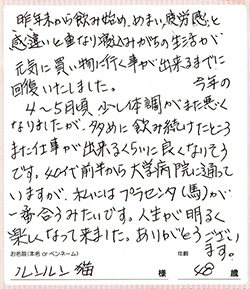 昨年末から飲み始め、めまい、疲労感と
感違いと重なり落込みがちの生活が
元気に買い物に行く事が出来るまでに
回復いたしました。 今年の
4〜5月頃 少し体調がまた悪く
なりましたが、多めに飲み続けたところ
また仕事が出来るくらいに良くなりそう
です。40代前半から大学病院に通って
いますが、私にはプラセンタ(馬)が
一番合うみたいです。人生が明るく
楽しくなって来ました。ありがとうござい
ます。
お名前(本名 or ペンネーム) 年齢
ルンルン猫 様 48 歳